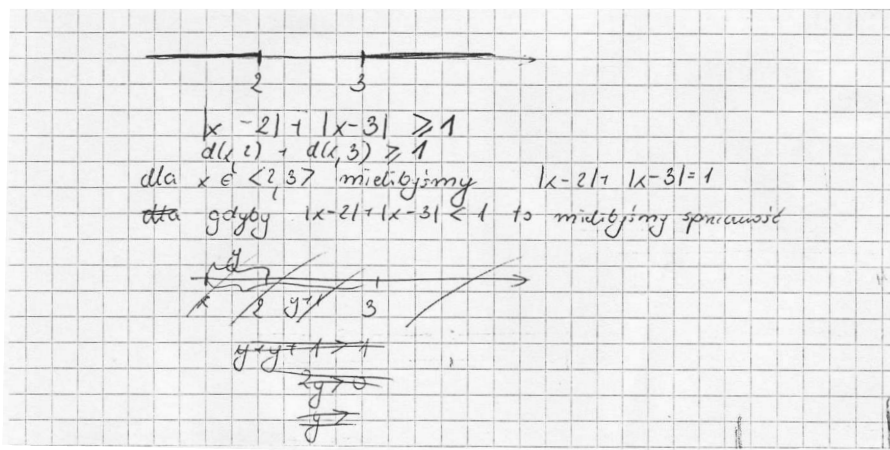 2 3
|x - 2| + |x-3| ⩾ 1
d(x,2) + d(x,3) ⩾ 1
dla x ∈ <2,3> mielibyśmy |x-2| + |x-3| = 1
dla gdyby |x-2| + |x-3| < 1 to mielibyśmy sprzeczność
y
x 2 y+1 3
y+y+1 > 1
2y > 0
y >